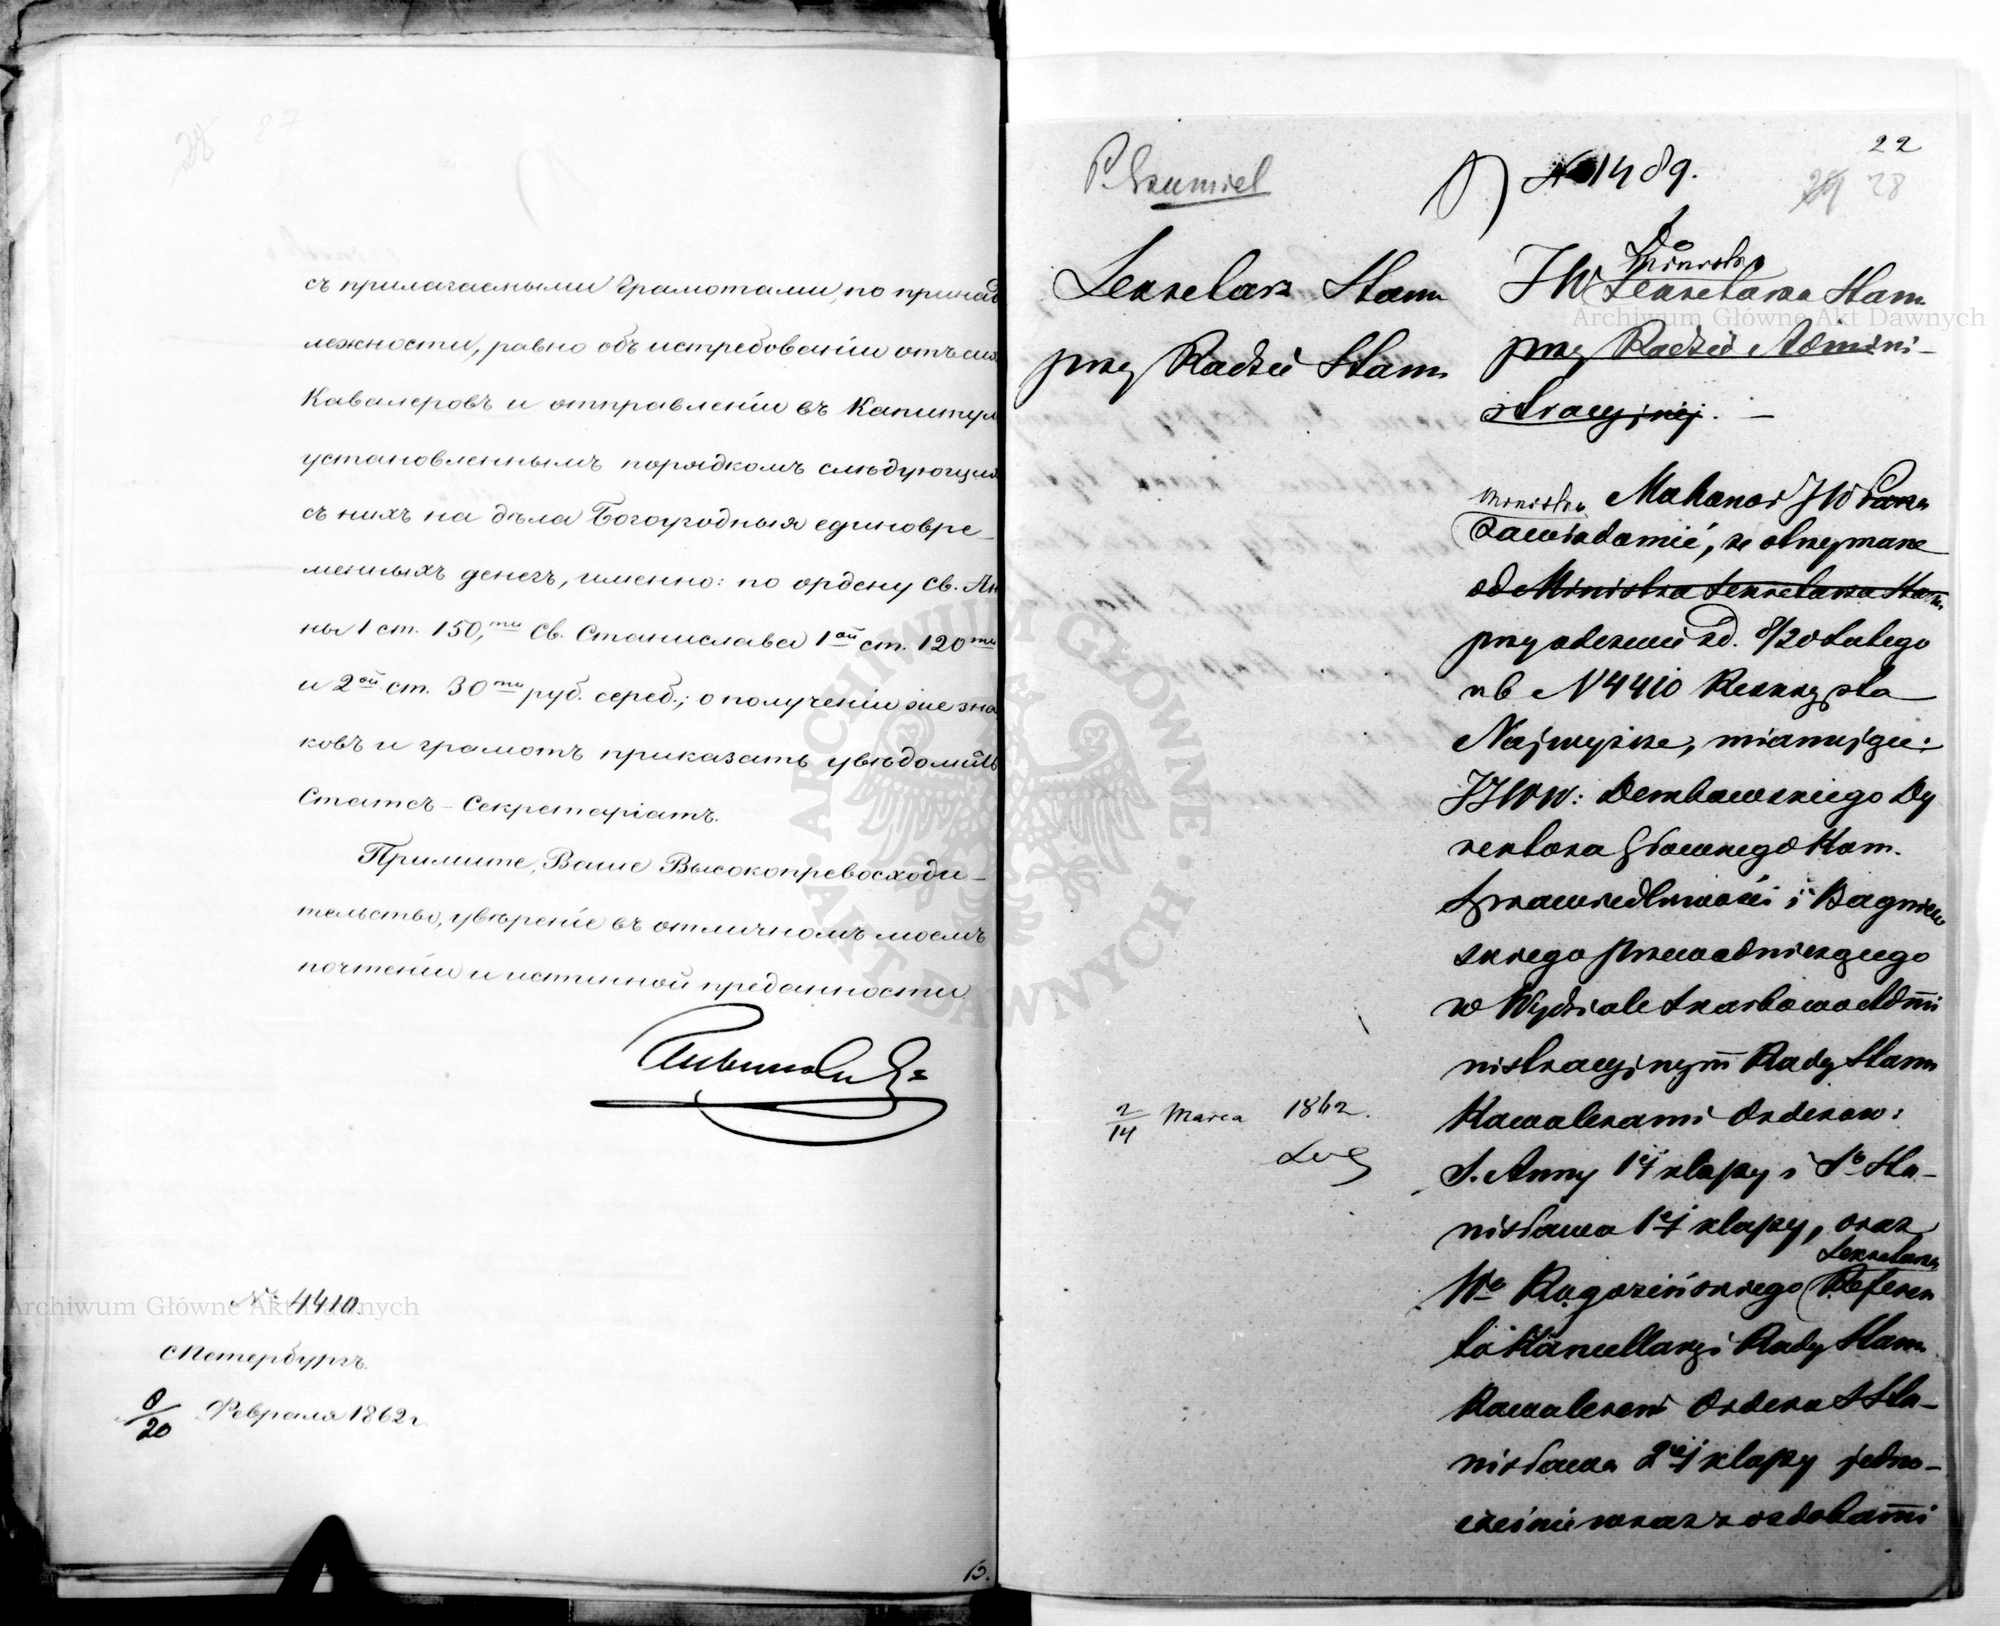 съ прилагаемыми грамотами, по принад
лежности, равно объ истребованіи отъ сихъ
Кавалеровъ и отправленіи въ Капитулъ
установленнымъ порядкомъ слѣдующихъ
съ нихъ на дѣла Богоугодныя единовре-
менныхъ денегъ, именно: по ордену Св. Ан
ны 1 ст. 150,ти Св. Станислава 1ой ст. 120ти
и 2ой ст. 30ти руб. сереб.; о полученіи же зна
ковъ и грамотъ приказать увѣдомить
Статсъ-Секретаріатъ.
Примите, Ваше Высокопревосходи-
тельство, увѣреніе въ отличномъ моемъ
почтеніи и истинной преданности
№ 4410.
СПетербургъ.
8/20 Февраля 1862 г.
22
N 1489.
28
Do
Ministra
Sekretarz Stanu
przy Radzie Stanu
JW Sekretarza Stanu
przy Radzie Admini-
stracyjnej. —
Ministra Mam honor JW Pana
zawiadomić, że otrzymane
od Ministra Sekretarza Stanu
przy odezwie z d. 8/20 Lutego
r b N 4410 Reskrypta
Najwyższe, mianujące:
JJWW: Dembowskiego Dy
rektora Głównego Kom.
Sprawiedliwości i Bagniew
skiego Przewodniczącego
w Wydziale Skarbowo Admi
nistracyjnym Rady Stanu
Kawalerami Orderów:
S. Anny 1ej klassy i So Sta-
nisława 1ej klassy, oraz
Sekretarza
Wo Rogozińskiego Referen
ta Kancellaryi Rady Stanu
Kawalerem Orderu S Sta-
nisława 2ej klassy jedno-
cześnie wraz z ozdobami
2/14 Marca 1862.
Archiwum Główne Akt Dawnych
Archiwum Główne Akt Dawnych
ARCHIWUM GŁÓWNE · AKT DAWNYCH ·